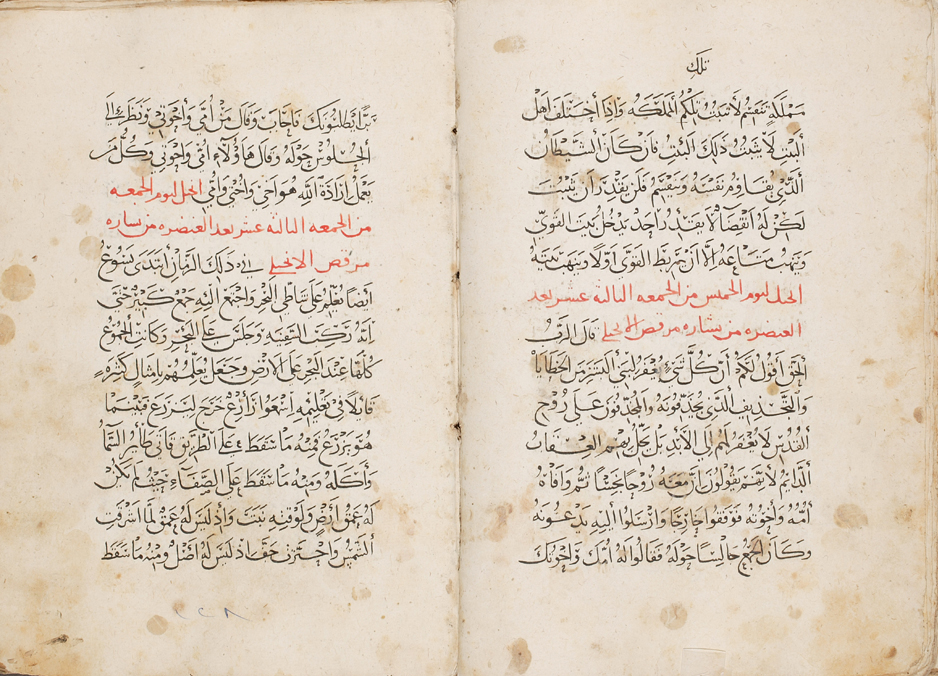 تلك
مملكةٍ تنقسم لا تثبت تلكم المملكه واذا أختلف اهل
البيت لا يثبت ذلك البيت فان كان الشيطان
الذي يقاوم نفسه وينقسم فلن يقدر أن يثبت
لكن له انقضآ لا يقدر احد يدخل بيت القوي
وينهب متاعه الا ان يربط القوى اولا وينهب بيته
انجيل ليوم الخميس من الجمعه الثالثه عشر بعد
العنصره من بشاره مرقص الانجيلي قال الرب
الحق اقول لكم أن كل شيءٍ يغفر لبني البشر من الخطايا
والتجديف الذي يجدفونه والمجدفون على روح
القدس لا يغفر لهم الي الأبد بل يحل بهم العقاب
الدايم لانهم يقولون ان معه روحا نجسًا ثم وافاهُ
أمه وأخوته فوقفوا خارجًا وارسلوا اليه يدعونه
وكان الجمع جالسًا حوله فقالوا له امك واخوتك
برًا يطلبونك فاجاب وقال من أمي وأخوتي ونظر الى
الجلوس حوله وقال هاؤلاء امي واخوتي وكل من
يعمل ارادة الله هو اخي واختي وامي انجيل ليوم الجمعه
من الجمعه الثالثه عشر بعد العنصره من بشاره
مرقص الانجيلي في ذلك الزمان ابتدى يسوع
أيضًا يعلم على شاطي البحر واجتمع اليه جمع كبير حتى
انه ركب السفينه وجلس في البحر وكانت الجموع
كلها عند البحر على الارض وجعل يعلمهم بامثال كثيره
قايلا في تعليمه اسمعوا زارع خرج ليزرع فبينما
هو يزرع فمنه ما سقط على الطريق فاتى طاير السمآ
وأكله ومنه ما سقط على الصفاء حيث لم يكن
له عمق أرض ولوقته نبت واذ ليس له عمق لما اشرقت
الشمس واحترق جف اذ ليس له اصل ومنه ما سقط
٢٢٨